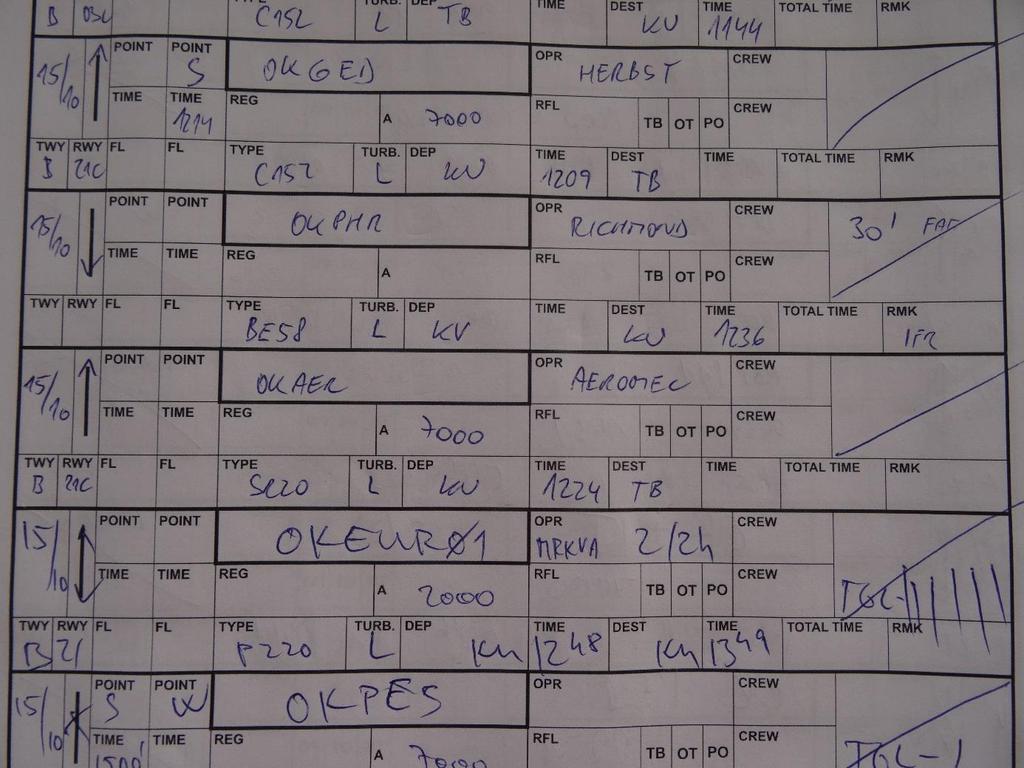 B TURB. DEP TIME DEST TIME TOTAL TIME RMK
C152 L TB KV 1144
15/10 POINT POINT OKGED OPR HERBST CREW
S
TIME TIME REG A 7000 RFL TB OT PO CREW
1214
TWY RWY FL FL TYPE TURB. DEP TIME DEST TIME TOTAL TIME RMK
B 21C C152 L KV 1209 TB
15/10 POINT POINT OKPHR OPR RICHMOND CREW 30'
TIME TIME REG A RFL TB OT PO CREW
TWY RWY FL FL TYPE TURB. DEP TIME DEST TIME TOTAL TIME RMK
BE58 L KV KV 1236 IFR
15/10 POINT POINT OKAER OPR CREW
TIME TIME REG A 7000 RFL TB OT PO CREW
TWY RWY FL FL TYPE TURB. DEP TIME DEST TIME TOTAL TIME RMK
B 21C SR20 L KV 1224 TB
15/10 POINT POINT OKEUR01 OPR MRKVA 2/2h CREW
TIME TIME REG A 2000 RFL TB OT PO CREW TGL-
TWY RWY FL FL TYPE TURB. DEP TIME DEST TIME TOTAL TIME RMK
B 21 P220 L KV 1248 KV 1349
15/10 POINT POINT OKPES OPR CREW
S W
TIME TIME REG A 7000 RFL TB OT PO CREW TGL-1